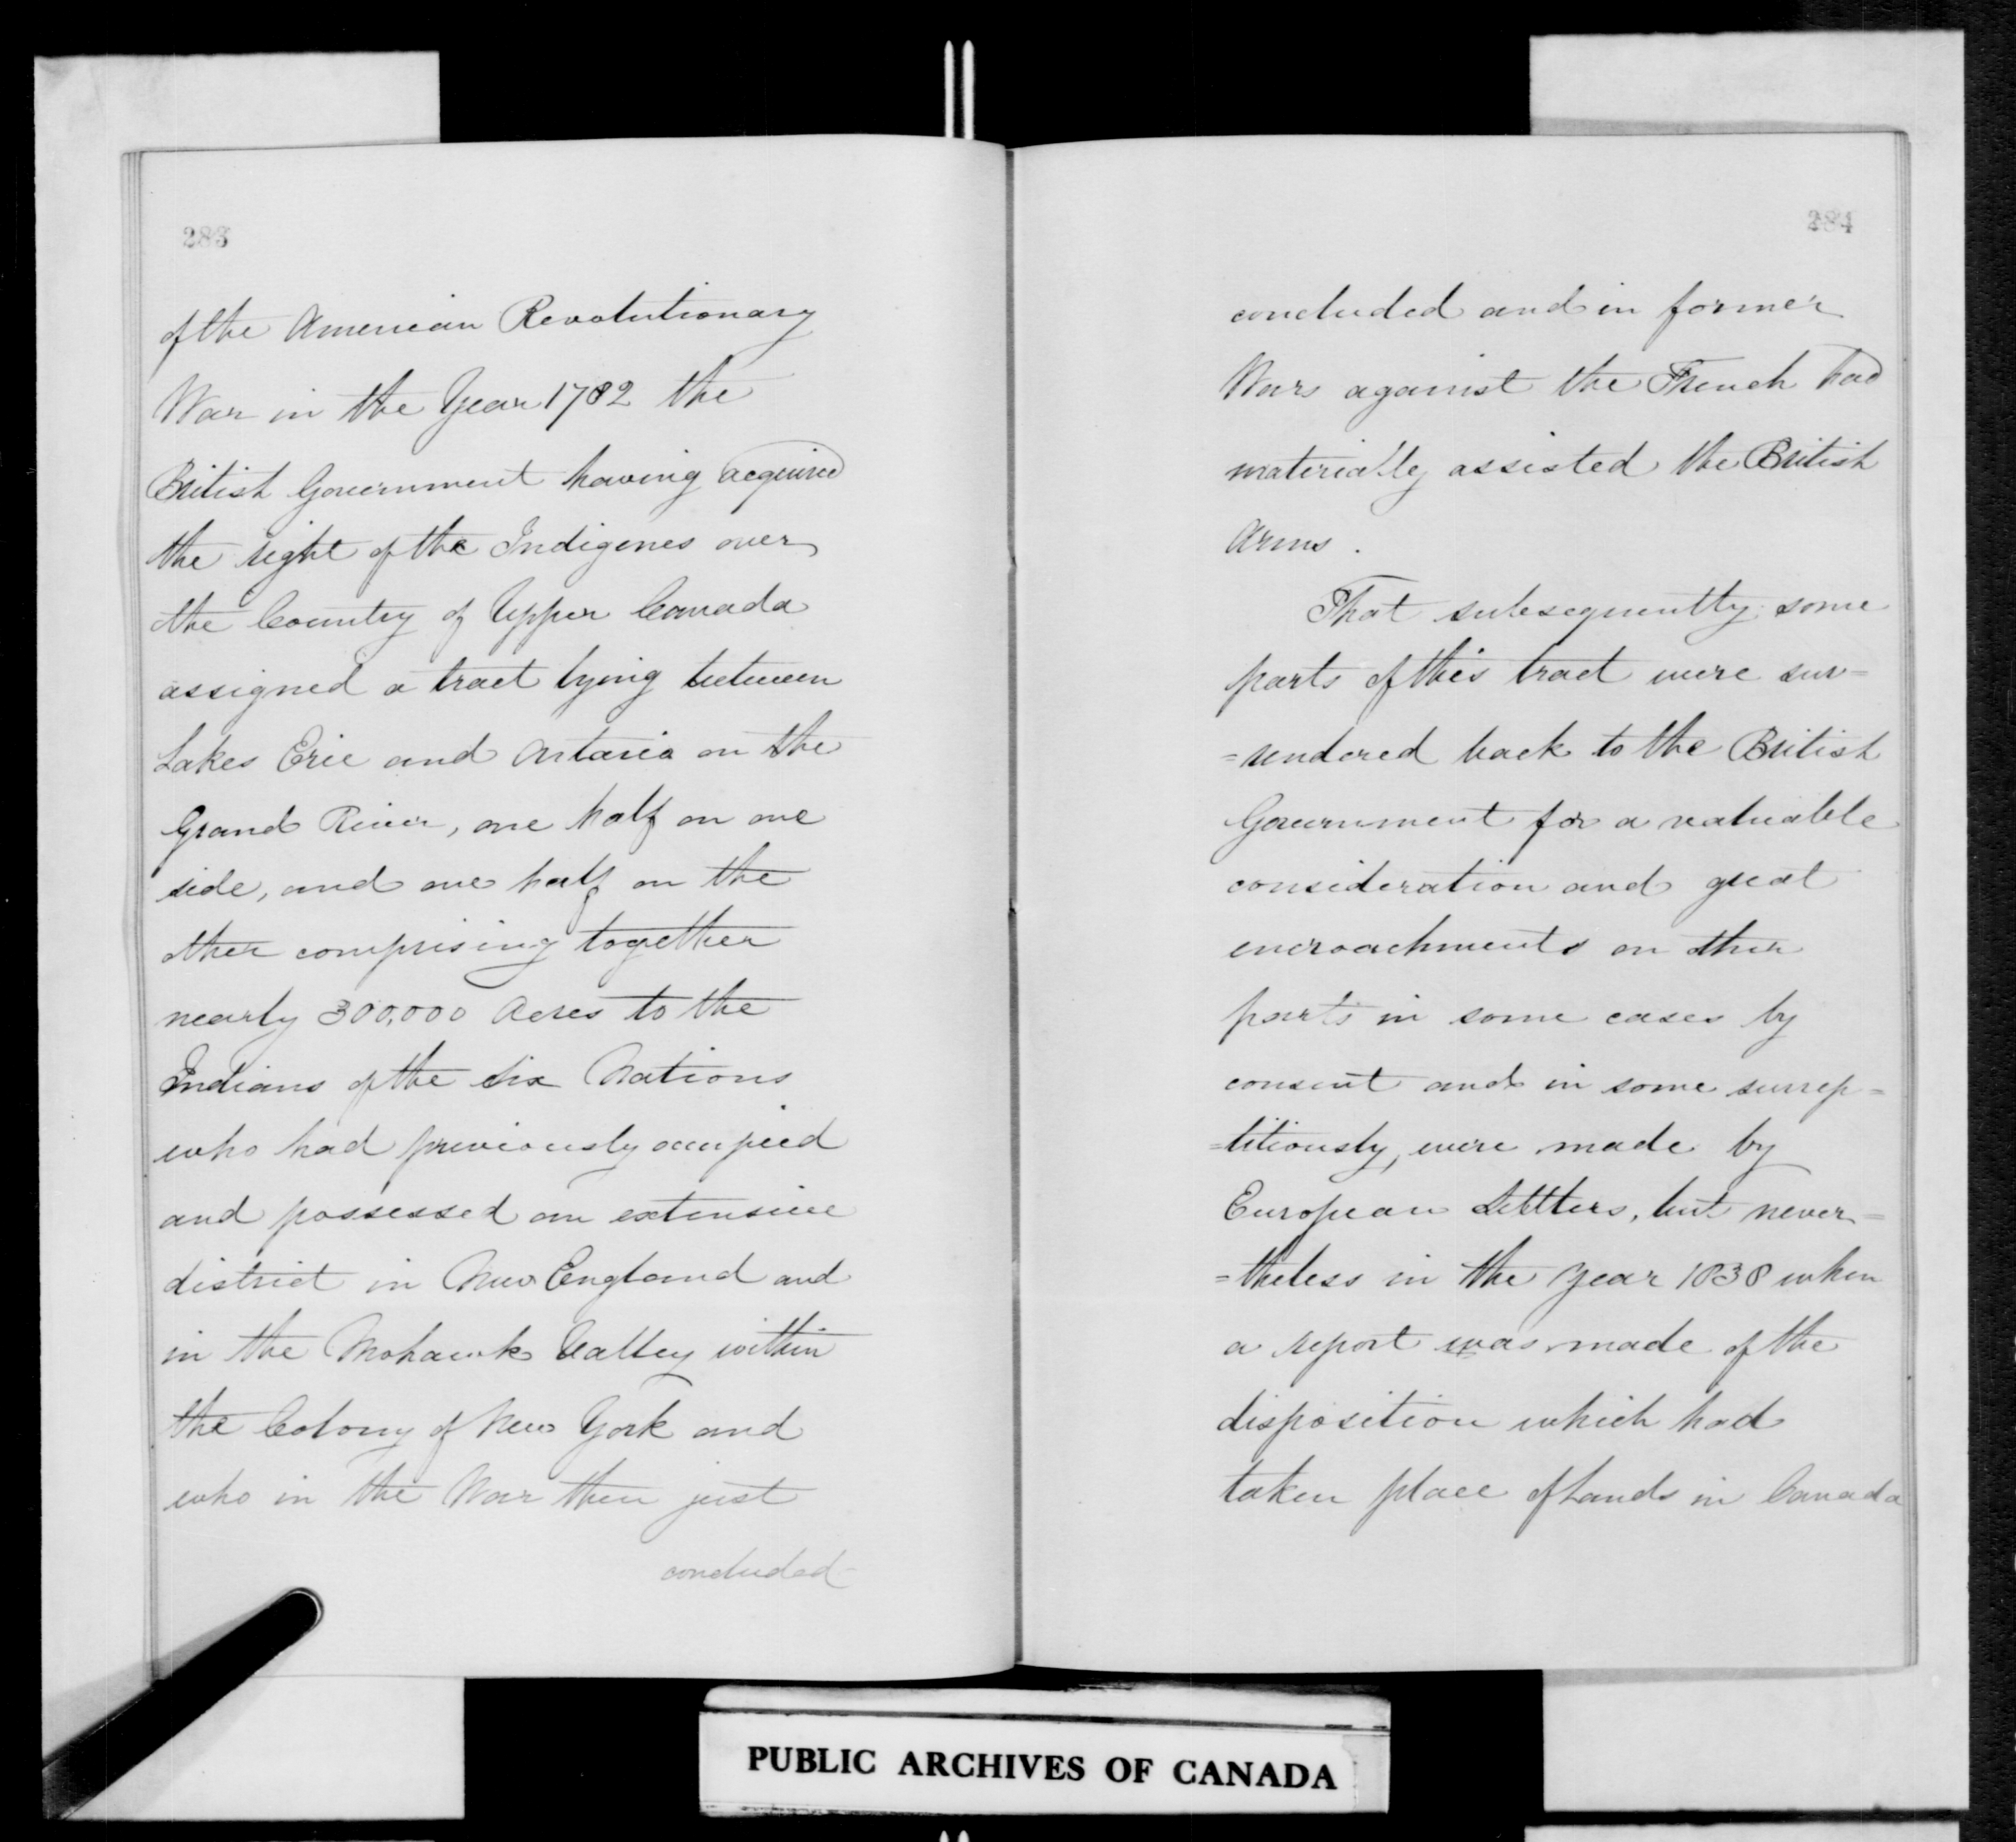 283
of the American Revolutionary
War in the Year 1782 the
British Government having acquired
the right of the Indigenes over
the Country of Upper Canada
assigned a tract lying between
Lakes Erie and Ontario on the
Grand River, one half on one
side, and one half on the
other comprising together
nearly 300,000 Acres to the
Indians of the Six Nations
who had previously occupied
and possessed an extensive
district in New England and
in the Mohawk Valley within
the Colony of New York and
who in the War then just
concluded
284
concluded and in former
Wars against the French had
materially assisted the British
Arms.
That subsequently some
parts of this tract were sur=
=rendered back to the British
Government for a valuable
consideration and great
encroachments on other
parts in some cases by
consent and in some surrep=
=titiously, were made by
European Settlers, but never=
=theless in the year 1838 when
a report was made of the
disposition which had
taken place of Lands in Canada
PUBLIC ARCHIVES OF CANADA